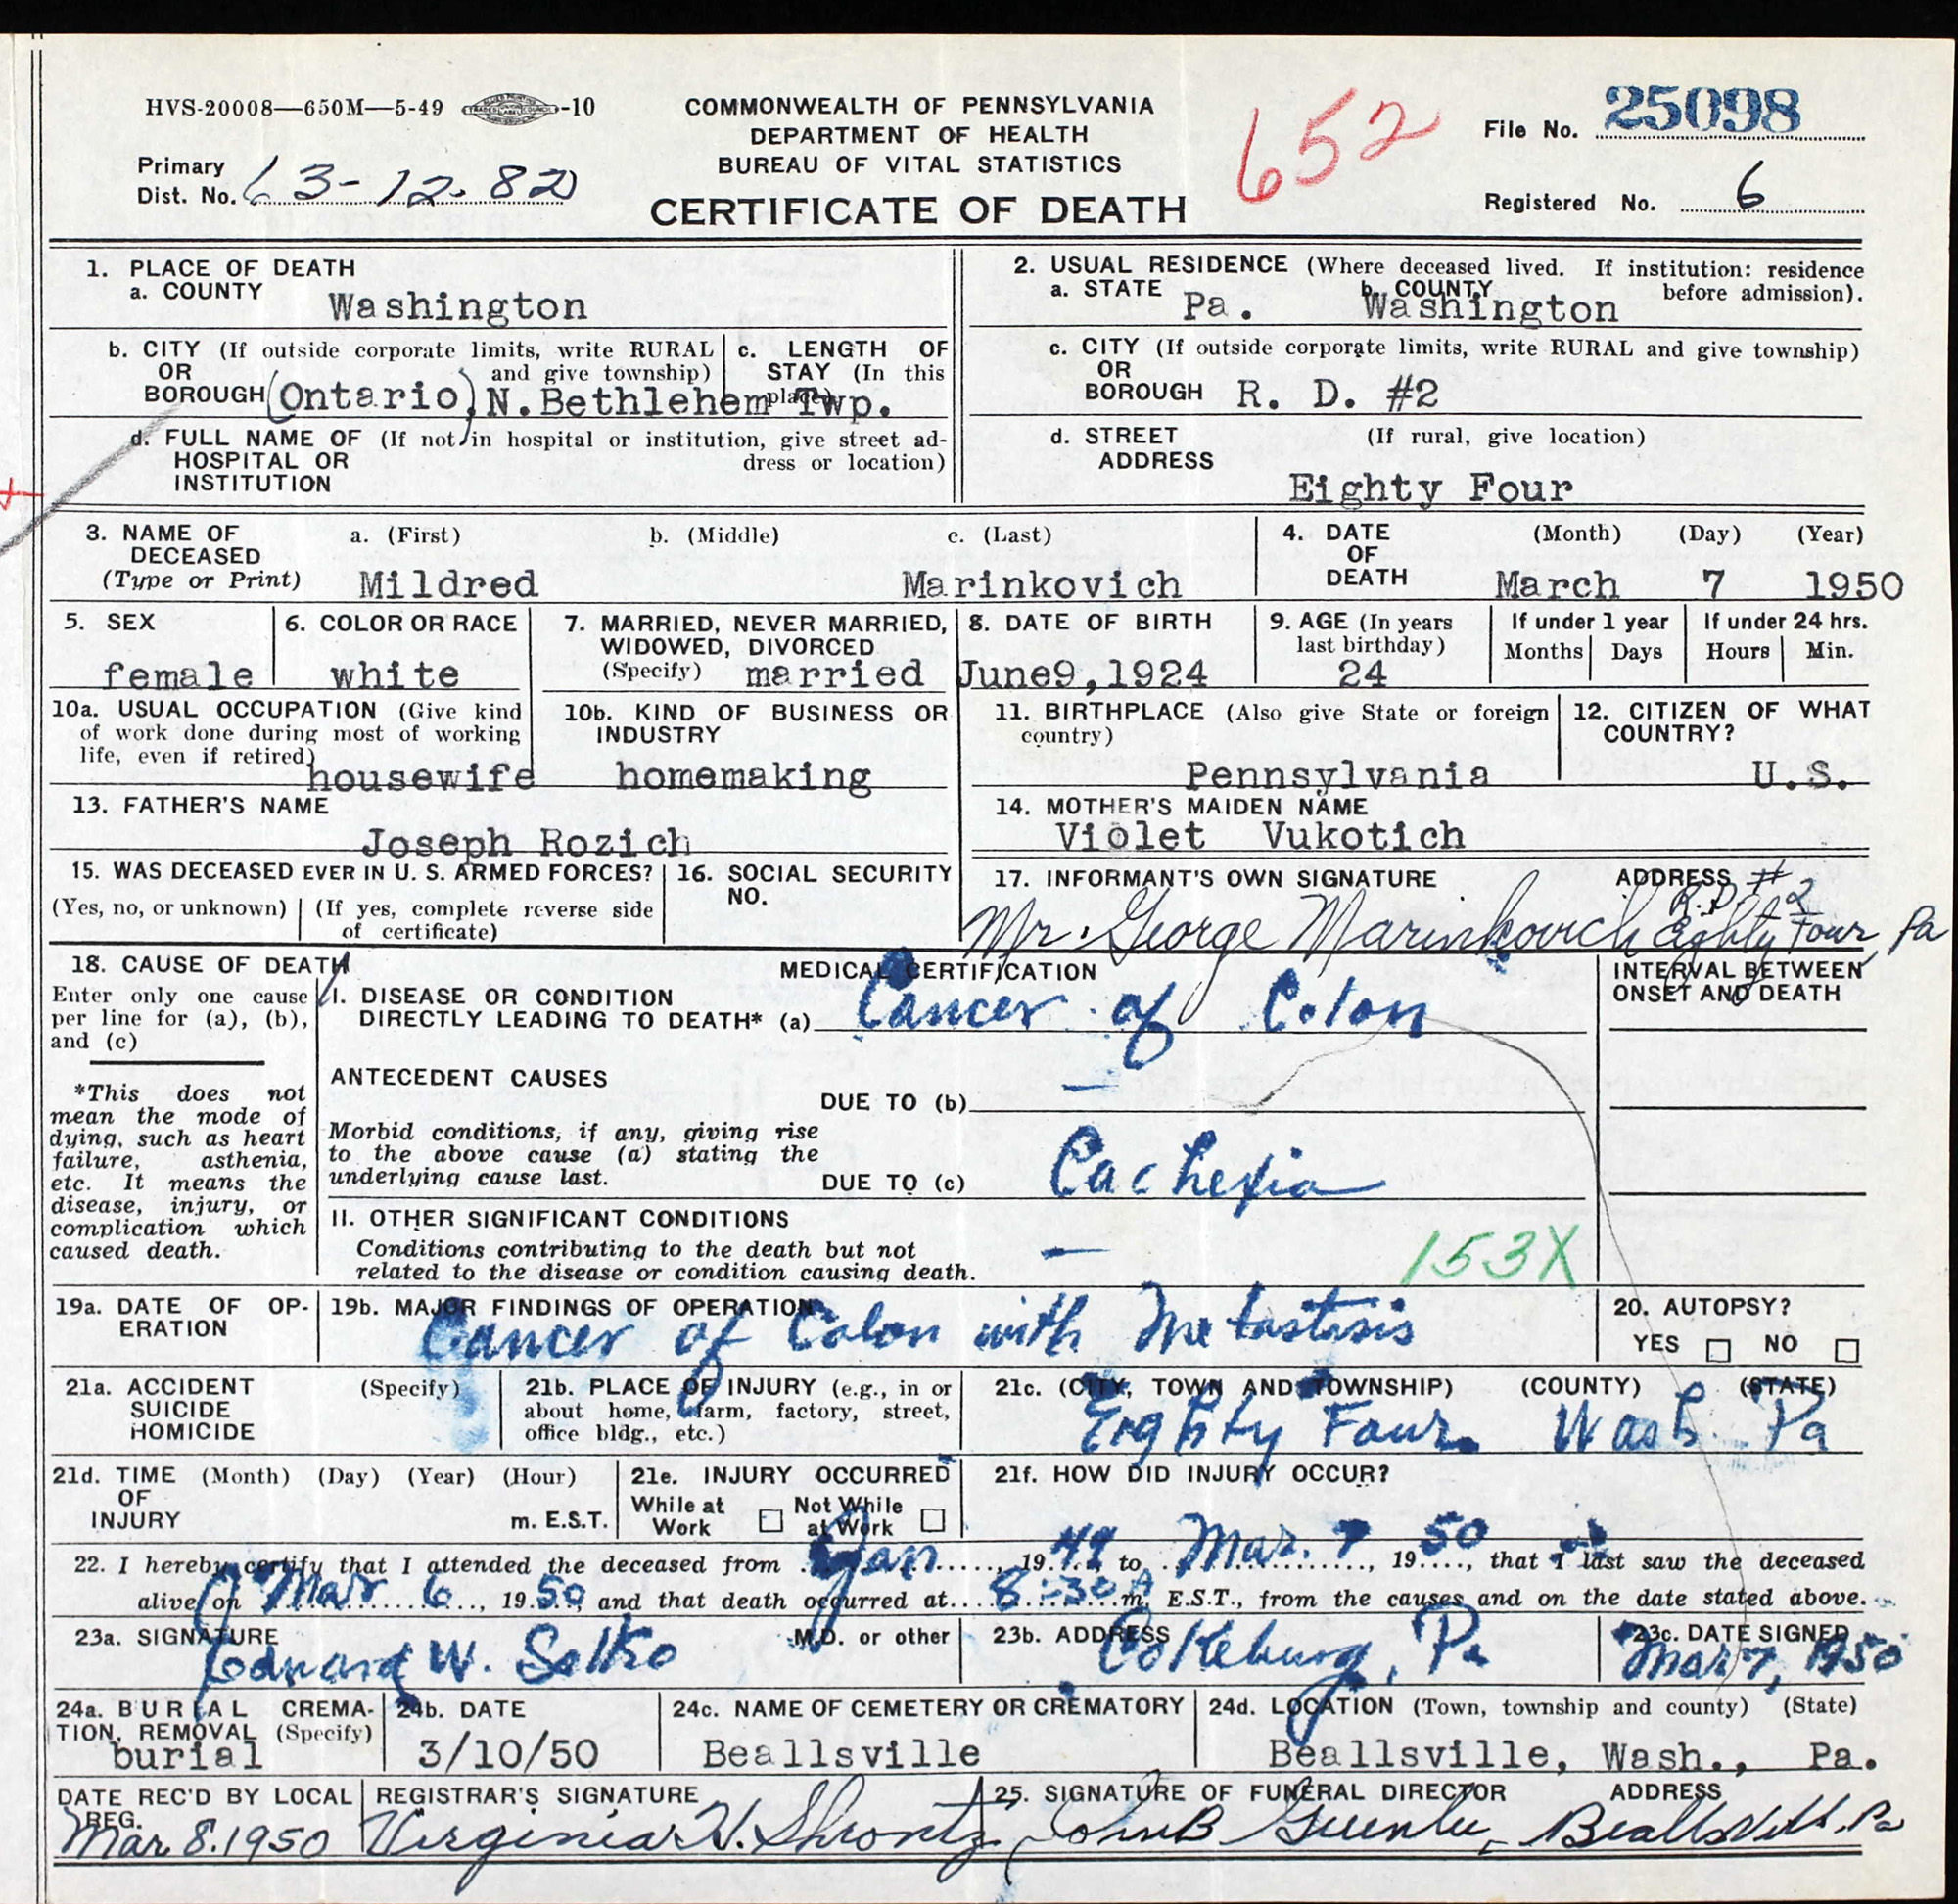 HVS-20008—650M—5-49 -10
COMMONWEALTH OF PENNSYLVANIA
DEPARTMENT OF HEALTH
BUREAU OF VITAL STATISTICS
CERTIFICATE OF DEATH
652
File No. 25098
Primary
Dist. No. 63-12-82
Registered No. 6
1. PLACE OF DEATH
a. COUNTY
Washington
2. USUAL RESIDENCE (Where deceased lived. If institution: residence
before admission).
a. STATE b. COUNTY
Pa. Washington
b. CITY (If outside corporate limits, write RURAL
OR and give township)
BOROUGH (Ontario) N.Bethlehem Twp.
c. LENGTH OF
STAY (In this
place)
c. CITY (If outside corporate limits, write RURAL and give township)
OR
BOROUGH R. D. #2
d. FULL NAME OF (If not in hospital or institution, give street ad-
HOSPITAL OR dress or location)
INSTITUTION
d. STREET (If rural, give location)
ADDRESS
Eighty Four
3. NAME OF a. (First) b. (Middle) c. (Last)
DECEASED
(Type or Print) Mildred Marinkovich
4. DATE (Month) (Day) (Year)
OF
DEATH March 7 1950
5. SEX
female
6. COLOR OR RACE
white
7. MARRIED, NEVER MARRIED,
WIDOWED, DIVORCED
(Specify) married
8. DATE OF BIRTH
June9,1924
9. AGE (In years
last birthday)
24
If under 1 year
Months Days
If under 24 hrs.
Hours Min.
10a. USUAL OCCUPATION (Give kind
of work done during most of working
life, even if retired)
housewife
10b. KIND OF BUSINESS OR
INDUSTRY
homemaking
11. BIRTHPLACE (Also give State or foreign
country)
Pennsylvania
12. CITIZEN OF WHAT
COUNTRY?
U.S.
13. FATHER'S NAME
Joseph Rozich
14. MOTHER'S MAIDEN NAME
Violet Vukotich
15. WAS DECEASED EVER IN U. S. ARMED FORCES?
(Yes, no, or unknown) (If yes, complete reverse side
of certificate)
16. SOCIAL SECURITY
NO.
17. INFORMANT'S OWN SIGNATURE ADDRESS
R.D. #2
Mr. George Marinkovich Eighty Four, Pa
18. CAUSE OF DEATH
Enter only one cause
per line for (a), (b),
and (c)
*This does not
mean the mode of
dying, such as heart
failure, asthenia,
etc. It means the
disease, injury, or
complication which
caused death.
MEDICAL CERTIFICATION
I. DISEASE OR CONDITION
DIRECTLY LEADING TO DEATH* (a) Cancer of Colon
ANTECEDENT CAUSES
DUE TO (b) —
Morbid conditions, if any, giving rise
to the above cause (a) stating the
underlying cause last.
DUE TO (c) Cachexia
II. OTHER SIGNIFICANT CONDITIONS
Conditions contributing to the death but not —
related to the disease or condition causing death.
153X
INTERVAL BETWEEN
ONSET AND DEATH
19a. DATE OF OP-
ERATION
19b. MAJOR FINDINGS OF OPERATION
Cancer of Colon with Metastasis
20. AUTOPSY?
YES NO
21a. ACCIDENT (Specify)
SUICIDE
HOMICIDE
21b. PLACE OF INJURY (e.g., in or
about home, farm, factory, street,
office bldg., etc.)
21c. (CITY, TOWN AND TOWNSHIP) (COUNTY) (STATE)
Eighty Four. Wash. Pa
21d. TIME (Month) (Day) (Year) (Hour)
OF
INJURY m. E.S.T.
21e. INJURY OCCURRED
While at Work Not While at Work
21f. HOW DID INJURY OCCUR?
22. I hereby certify that I attended the deceased from Jan, 1949, to Mar. 7, 1950, that I last saw the deceased
alive on Mar 6, 1950, and that death occurred at 8:30 A m. E.S.T., from the causes and on the date stated above.
23a. SIGNATURE M.D. or other
Edward W. Solko
23b. ADDRESS
Cokeburg, Pa
23c. DATE SIGNED
Mar 7, 1950
24a. BURIAL CREMA-
TION, REMOVAL (Specify)
burial
24b. DATE
3/10/50
24c. NAME OF CEMETERY OR CREMATORY
Beallsville
24d. LOCATION (Town, township and county) (State)
Beallsville, Wash., Pa.
DATE REC'D BY LOCAL
REG.
Mar. 8. 1950
REGISTRAR'S SIGNATURE
Virginia H. Shrontz
25. SIGNATURE OF FUNERAL DIRECTOR ADDRESS
John B Greenlee, Beallsville, Pa